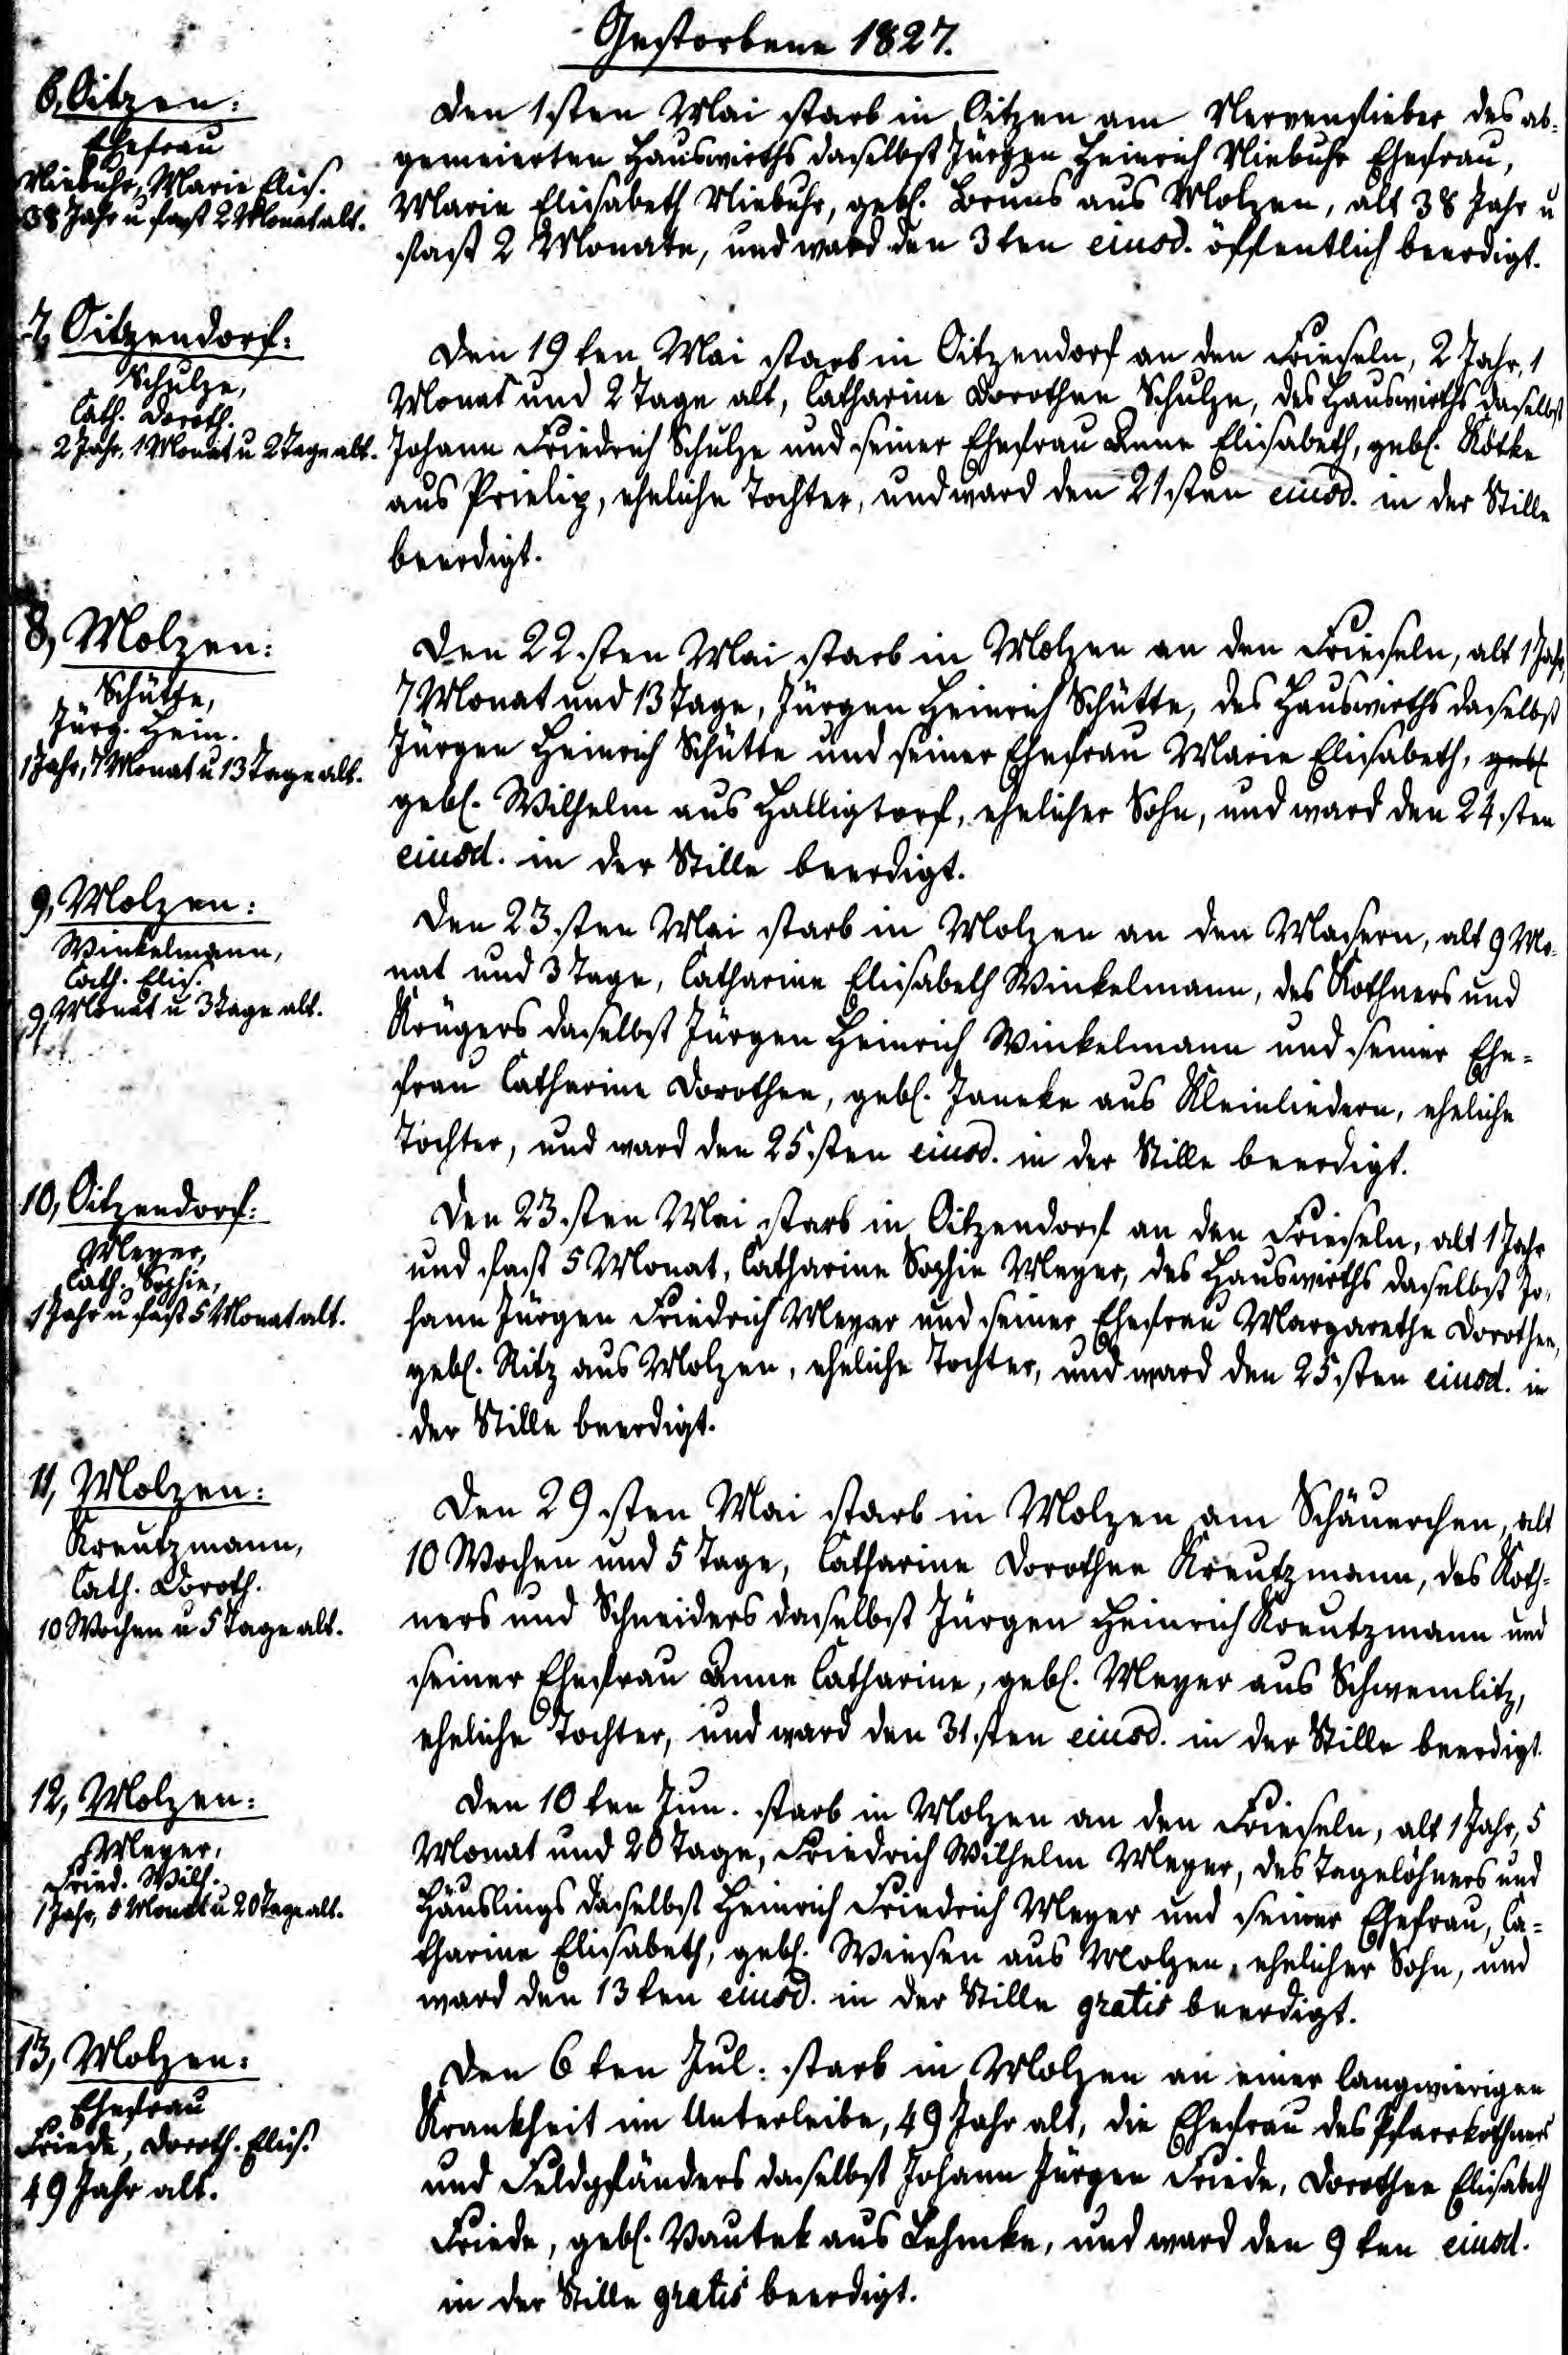 Gestorbene 1827.
6, Oitzen:
Ehefrau
Niebuhr, Marie Elis.
38 Jahr u fast 2 Monat alt.
Den 1sten Mai starb in Oitzen am Nervenfieber des ab-
gemeierten Hauswirths daselbst Jürgen Heinrich Niebuhr Ehefrau,
Marie Elisabeth Niebuhr, geb. Bruns aus Molzen, alt 38 Jahr u
fast 2 Monate, und ward den 3ten eiusd. öffentlich beerdigt.
7, Oitzendorf:
Schulze,
Cath. Doroth.
2 Jahr, 1 Monat u 2 Tage alt.
Den 19ten Mai starb in Oitzendorf an den Frieseln, 2 Jahr, 1
Monat und 2 Tage alt, Catharine Dorothee Schulze, des Hauswirths daselbst
Johann Friedrich Schulze und seiner Ehefrau Anne Elisabeth, geb. Kötke
aus Prielip, eheliche Tochter, und ward den 21sten eiusd. in der Stille
beerdigt.
8, Molzen:
Schütte,
Jürg. Hein.
1 Jahr, 7 Monat u 13 Tage alt.
Den 22sten Mai starb in Molzen an den Frieseln, alt 1 Jahr,
7 Monat und 13 Tage, Jürgen Heinrich Schütte, des Hauswirths daselbst
Jürgen Heinrich Schütte und seiner Ehefrau Marie Elisabeth, geb.
geb. Wilhelm aus Halligtorf, ehelicher Sohn, und ward den 24sten
eiusd. in der Stille beerdigt.
9, Molzen:
Winkelmann,
Cath. Elis.
9 Monat u 3 Tage alt.
Den 23sten Mai starb in Molzen an den Masern, alt 9 Mo-
nat und 3 Tage, Catharine Elisabeth Winkelmann, des Kothners und
Krügers daselbst Jürgen Heinrich Winkelmann und seiner Ehe-
frau Catharine Dorothee, geb. Janeke aus Kleinliedern, eheliche
Tochter, und ward den 25sten eiusd. in der Stille beerdigt.
10, Oitzendorf:
Meyer,
Cath. Sophie,
1 Jahr u fast 5 Monat alt.
Den 23sten Mai starb in Oitzendorf an den Frieseln, alt 1 Jahr
und fast 5 Monat, Catharine Sophie Meyer, des Hauswirths daselbst Jo-
hann Jürgen Friedrich Meyer und seiner Ehefrau Margarethe Dorothee,
geb. Ritz aus Molzen, eheliche Tochter, und ward den 25sten eiusd. in
der Stille beerdigt.
11, Molzen:
Kreutzmann,
Cath. Doroth.
10 Wochen u 5 Tage alt.
Den 29sten Mai starb in Molzen am Schäuerchen, alt
10 Wochen und 5 Tage, Catharine Dorothee Kreutzmann, des Koth-
ners und Schneiders daselbst Jürgen Heinrich Kreutzmann und
seiner Ehefrau Anne Catharine, geb. Meyer aus Schwemlitz,
eheliche Tochter, und ward den 31sten eiusd. in der Stille beerdigt.
12, Molzen:
Meyer,
Fried. Wilh.
1 Jahr, 5 Monat u 20 Tage alt.
Den 10ten Jun. starb in Molzen an den Frieseln, alt 1 Jahr, 5
Monat und 20 Tage, Friedrich Wilhelm Meyer, des Tagelöhners und
Häuslings daselbst Heinrich Friedrich Meyer und seiner Ehefrau, Ca-
tharine Elisabeth, geb. Wiesen aus Molzen, ehelicher Sohn, und
ward den 13ten eiusd. in der Stille gratis beerdigt.
13, Molzen:
Ehefrau
Friede, Doroth. Elis.
49 Jahr alt.
Den 6ten Jul. starb in Molzen an einer langwierigen
Krankheit im Unterleibe, 49 Jahr alt, die Ehefrau des Pfarrkothners
und Feldpfänders daselbst Johann Jürgen Friede, Dorothee Elisabeth
Friede, geb. Vautek aus Lehmke, und ward den 9ten eiusd.
in der Stille gratis beerdigt.